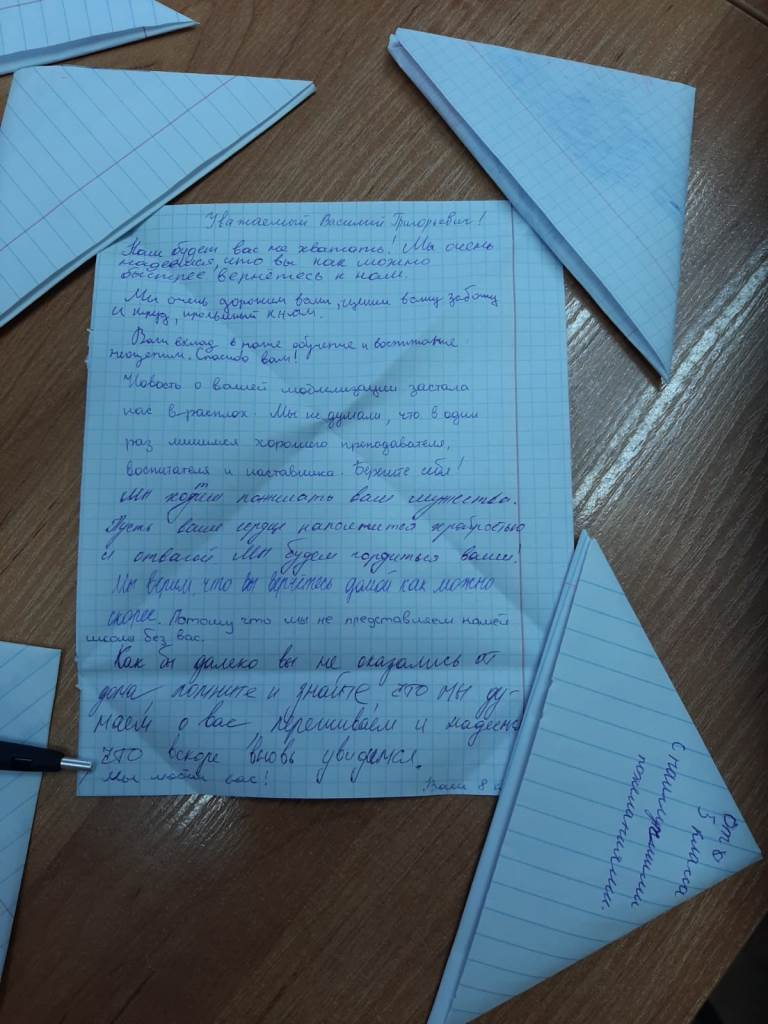 Уважаемый Василий Григорьевич!
Нам будет вас не хватать! Мы очень
надеемся, что вы как можно
быстрее вернётесь к нам.
Мы очень дорожим вами, ценим вашу заботу
и труд, к нам.
Ваш вклад в наше обучение и воспитание
неоценим. Спасибо вам!
Новость о вашей мобилизации застала
нас в расплох. Мы не думали, что в один
раз лишимся хорошего преподавателя,
воспитателя и наставника. Берегите себя!
Мы хотем пожелать вам мужества.
Пусть ваше сердце наполнится храбростью
и отвагой Мы будем гордиться вами!
Мы верим, что вы вернётесь домой как можно
скорее. Потому что мы не представляем нашей
школы без вас.
Как бы далеко вы не оказались от
дома помните и знайте что мы ду-
маем о вас переживаем и
что вскоре вновь увидимся.
Мы любим вас!
Ваш 8
От
5 класса
с наилучшими
пожеланиями.